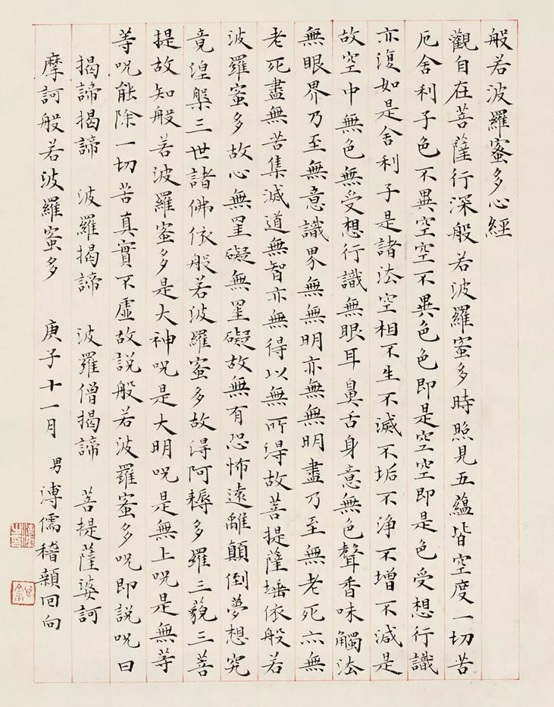 般若波羅蜜多心經
觀自在菩薩行深般若波羅蜜多時照見五蘊皆空度一切苦
厄舍利子色不異空空不異色色即是空空即是色受想行識
亦復如是舍利子是諸法空相不生不滅不垢不淨不增不減是
故空中無色無受想行識無眼耳鼻舌身意無色聲香味觸法
無眼界乃至無意識界無無明亦無無明盡乃至無老死亦無
老死盡無苦集滅道無智亦無得以無所得故菩提薩埵依般若
波羅蜜多故心無罣礙無罣礙故無有恐怖遠離顛倒夢想究
竟涅槃三世諸佛依般若波羅蜜多故得阿耨多羅三藐三菩
提故知般若波羅蜜多是大神呪是大明呪是無上呪是無等
等呪能除一切苦真實不虛故說般若波羅蜜多呪即說呪曰
揭諦揭諦 波羅揭諦 波羅僧揭諦 菩提薩婆訶
摩訶般若波羅蜜多 庚子十一月 男溥儒稽顙回向